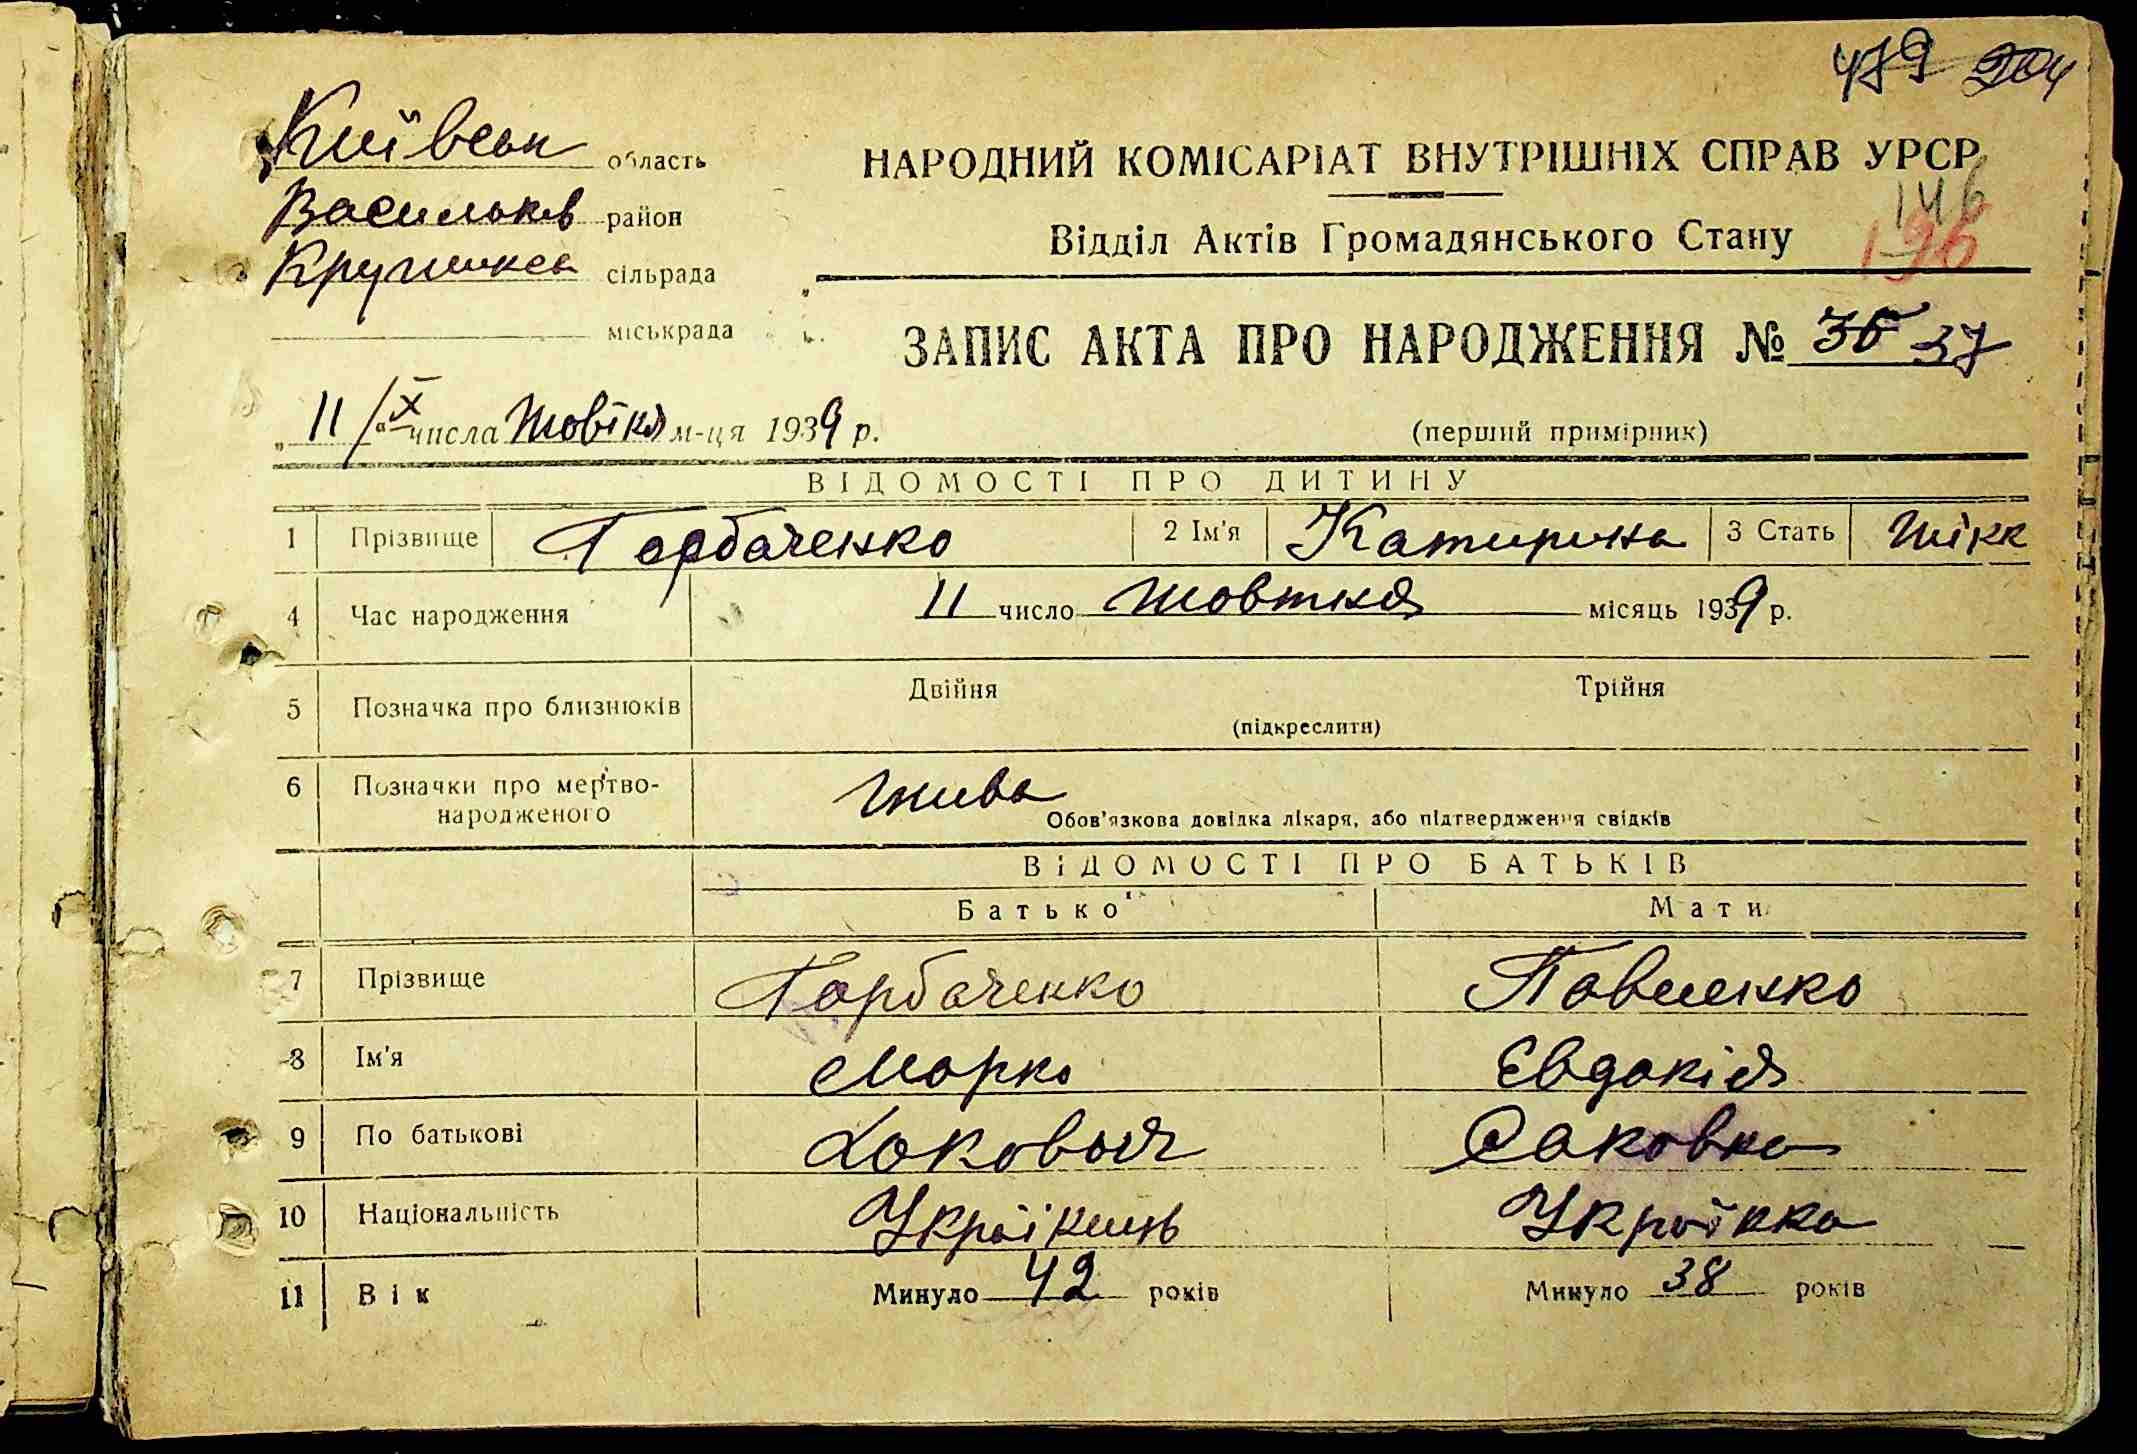 479 204
Київськ область
Васильків район
Крушинсь сільрада
міськрада
НАРОДНИЙ КОМІСАРІАТ ВНУТРІШНІХ СПРАВ УРСР
146
Відділ Актів Громадянського Стану 196
ЗАПИС АКТА ПРО НАРОДЖЕННЯ № 36 37
„ 11/X “ числа Жовтня м-ця 1939 р.
(перший примірник)
ВІДОМОСТІ ПРО ДИТИНУ
1 Прізвище Горбаченко 2 Ім'я Катирина 3 Стать жінк
4 Час народження 11 число Жовтня місяць 1939 р.
5 Позначка про близнюків Двійня Трійня
(підкреслити)
6 Позначки про мертво-
народженого
жива
Обов'язкова довідка лікаря, або підтвердження свідків
ВІДОМОСТІ ПРО БАТЬКІВ
Батько Мати
7 Прізвище Горбаченко Павленко
8 Ім'я Марко Євдакія
9 По батькові Саковна
10 Національність Українець Українка
11 Вік Минуло 42 років Минуло 38 років